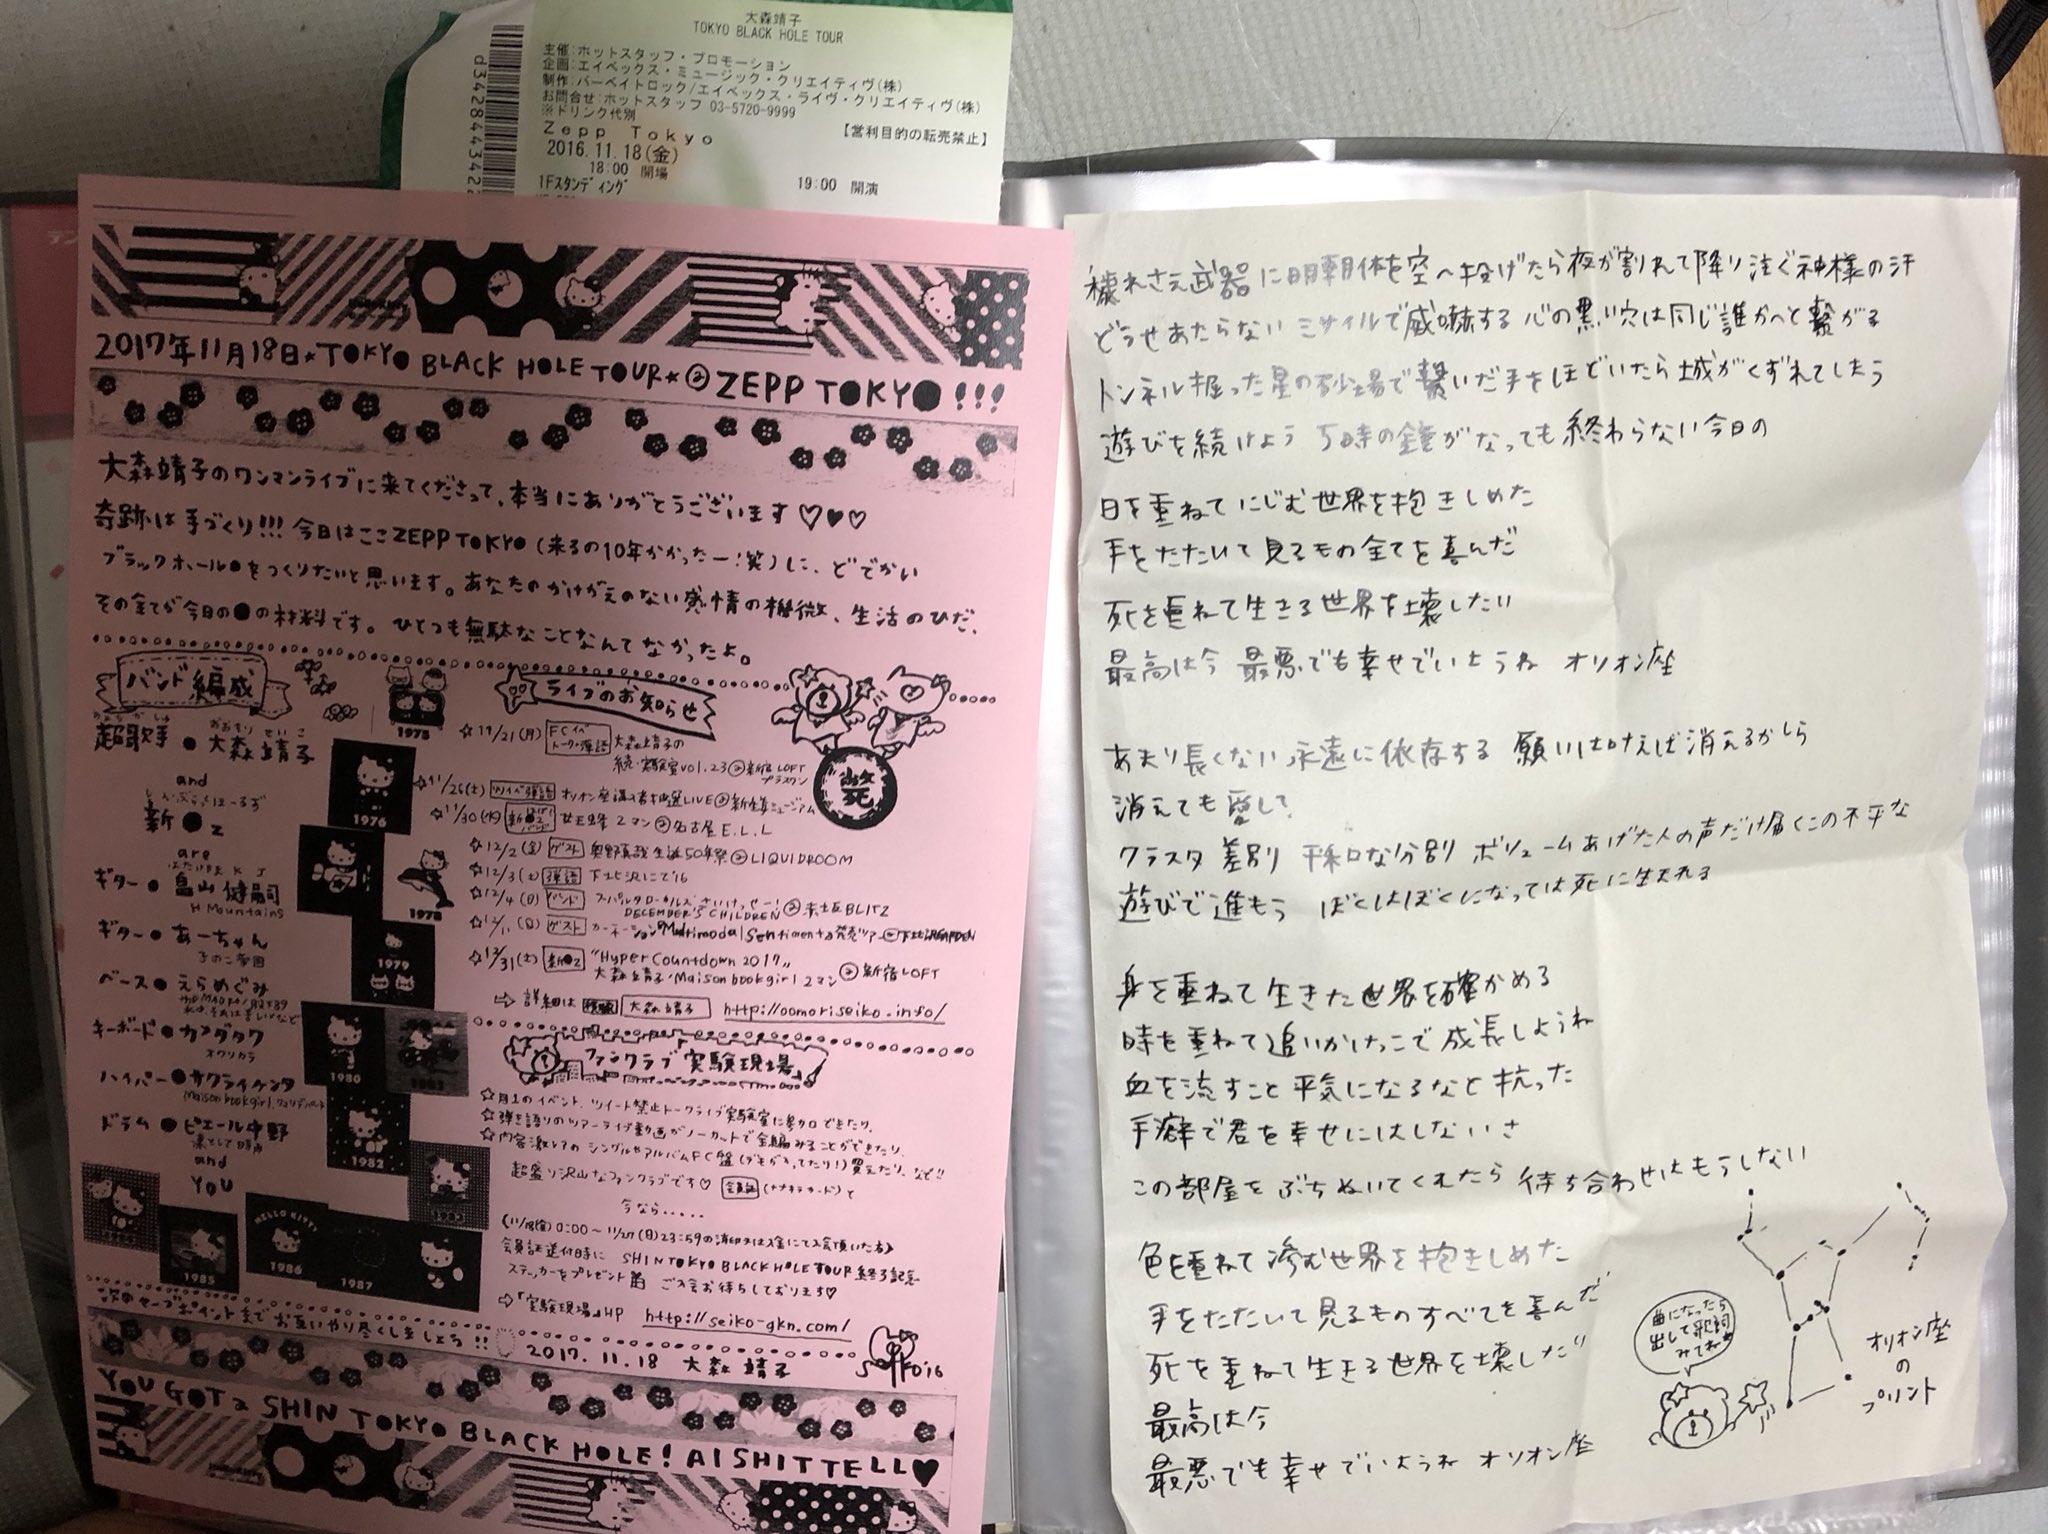 大森靖子
TOKYO BLACK HOLE TOUR
主催:ホットスタッフ・プロモーション
企画:エイベックス・ミュージック・クリエイティヴ(株)
制作:パーベイトロック/エイベックス・ライヴ・クリエイティヴ(株)
お問合せ:ホットスタッフ 03-5720-9999
※ドリンク代別
【営利目的の転売禁止】
Zepp Tokyo
2016.11.18(金)
18:00 開場
19:00 開演
1Fスタンディング
2017年11月18日★TOKYO BLACK HOLE TOUR★@ZEPP TOKYO!!!
大森靖子のワンマンライブに来てくださって、本当にありがとうございます♡♥♡
奇跡は手づくり!!! 今日はここZEPP TOKYO(来るの10年かかったー!笑)に、どでかい
ブラックホール●をつくりたいと思います。あなたのかけがえのない感情の機微、生活のひだ、
その全てが今日の●の材料です。ひとつも無駄なことなんてなかったよ。
バンド編成
超歌手●大森靖子
and
新●z
are
ギター●畠山健嗣
H Mountains
ギター●あーちゃん
ベース●えらめぐみ
キーボード●カメダタク
オワリカラ
ハイパー●サクライケンタ
Maison book girl
ドラム●ピエール中野
凛として時雨
and
YOU
1975
1976
1978
1979
1980
1982
1983
1985
HELLO KITTY
1986
1987
ライブのお知らせ
☆11/21(月) FCイベ トーク&弾語 大森靖子の
続・実験室vol.23@新宿LOFT
プラスワン
☆11/26(土) オリオン座購入者抽選LIVE@新宿ミュージアム
☆11/30(水) 女王蜂2マン@名古屋E.L.L
☆12/2(金) ゲスト 奥野真哉生誕50年祭@LIQUIDROOM
☆12/3(土) 弾語 下北沢にて'16
☆12/4(日) バンド
DECEMBER'S CHILDREN@赤坂BLITZ
☆12/11(日) ゲスト カーネーション"Multimodal Sentiment"発売ツアー@下北沢GARDEN
☆12/31(土) 新●z "Hyper Countdown 2017"
大森靖子/Maison book girl 2マン@新宿LOFT
⇨詳細は 検索 大森靖子 http://oomoriseiko.info/
ファンクラブ「実験現場」
☆月1のイベント、ツイート禁止トークライブ実験室に参加できたり、
☆弾き語りのツアーライブ動画がノーカットで全編みることができたり、
☆内容激してのシングルやアルバムFC盤(デモがきってたり!)買えたり、など!!
超盛り沢山なファンクラブです♡ 会員証(ナナキテカード)と
今なら.....
(11/18(金)0:00〜11/27(日)23:59の消印又は入金にて入会頂いた方)
会員証送付時に SHIN TOKYO BLACK HOLE TOUR終了記念
ステッカーをプレゼント ご入会お待ちしております♡
⇨「実験現場」HP http://seiko-gkn.com/
次のセーブポイントまでお互いやり尽くしましょう!!
2017.11.18 大森靖子
seiko'16
YOU GOT a SHIN TOKYO BLACK HOLE! AISHITTELL♥
穢れさえ武器に明朝体を空へ投げたら夜が割れて降り注ぐ神様の汗
どうせあたらないミサイルで威嚇する 心の黒い穴は同じ誰かへと繋がる
トンネル掘った星の砂場で繋いだ手をほどいたら城がくずれてしまう
遊びを続けよう 5時の鐘がなっても終わらない今日の
日を重ねてにじむ世界を抱きしめた
手をたたいて見るもの全てを喜んだ
死を重ねて生きる世界を壊したい
最高は今 最悪でも幸せでいようね オリオン座
あまり長くない永遠に依存する 願いは叶えば消えるかしら
消えても愛して
クラスタ 差別 平和な分別 ボリュームあげた人の声だけ届くこの不平な
遊びで進もう ぼくはぼくになっては死に生まれる
身を重ねて生きた世界を確かめる
時を重ねて追いかけっこで成長しようね
血を流すこと平気になるなと抗った
手癖で君を幸せにはしないさ
この部屋をぶちぬいてくれたら 待ち合わせはもうしない
色を重ねて滲む世界を抱きしめた
手をたたいて見るものすべてを喜んだ
死を重ねて生きる世界を壊したい
最高は今
最悪でも幸せでいようね オリオン座
曲になったら
出して歌詞
みてね
オリオン座
の
プリント